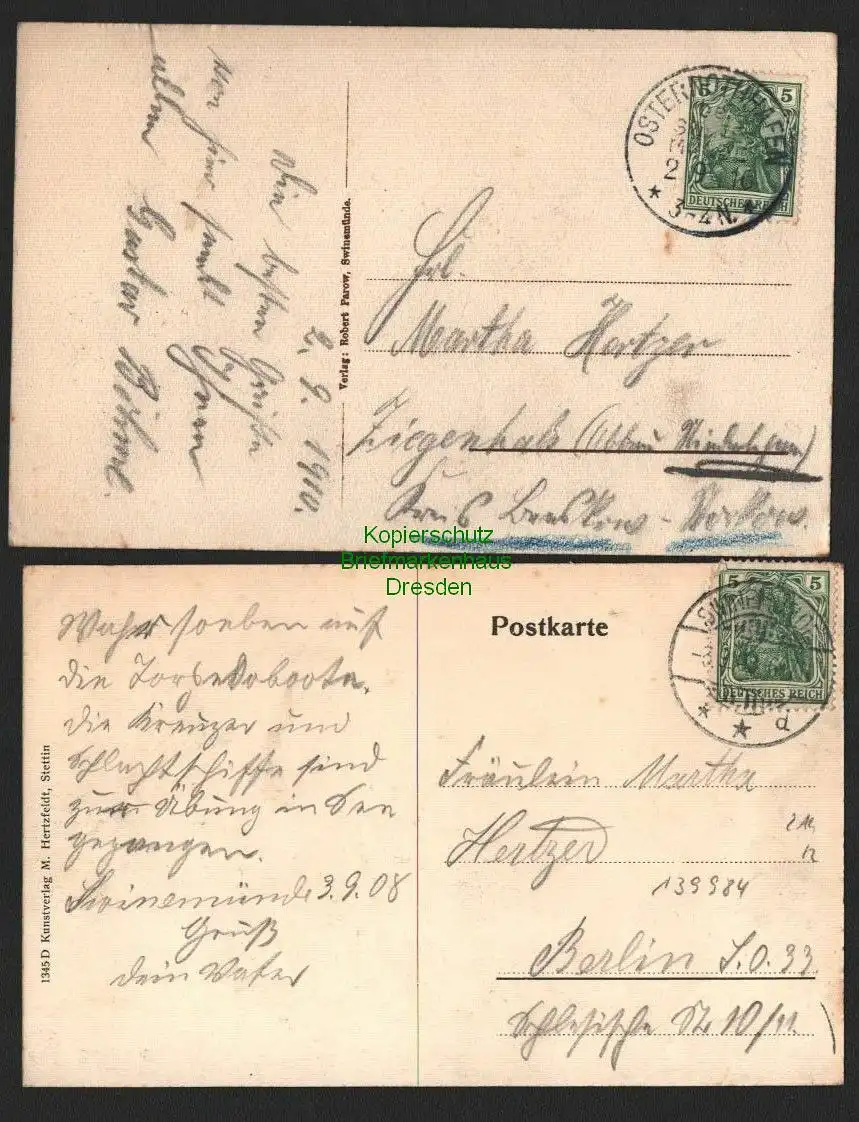 2. 9. 1910.
Die besten Grüße
von hier sendet Ihnen
allen Gustav Böhme.
Verlag: Robert Parow, Swinemünde.
OSTERNOTHHAFEN
2 9 10
* 3-4N. *
5
DEUTSCHES REICH
Frl.
Martha Hertzer
Ziegenhals (Abbau
Kreis Beeskow-Storkow.
Kopierschutz
Briefmarkenhaus
Dresden
Wahr soeben auf
die Torpedoboote,
die Kreuzer und
Schlachtschiffe sind
zur Übung in See
gegangen.
Swinemünde 3.9.08
Gruß
dein Vater
1345 D Kunstverlag M. Hertzfeldt, Stettin
Postkarte
5 5
DEUTSCHES REICH
* * d
Fräulein Martha
Hertzer
139984
Berlin S.O. 33
Schlesische St. 10/11